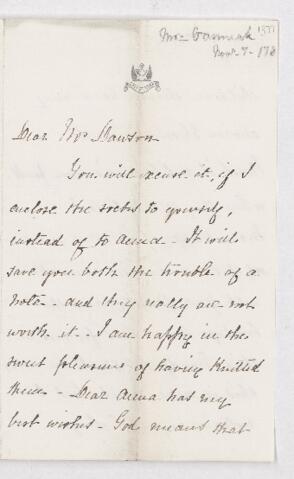 Mrs
Nov. 7-
Dear Mrs Dawson
You will excuse it, if I
enclose the socks to yourself,
instead of to Anna - It will
save you both the trouble of a
note - and they really are not
worth it - I am happy in the
sweet pleasure of having knitted
them - Dear Anna has my
best wishes - God means that